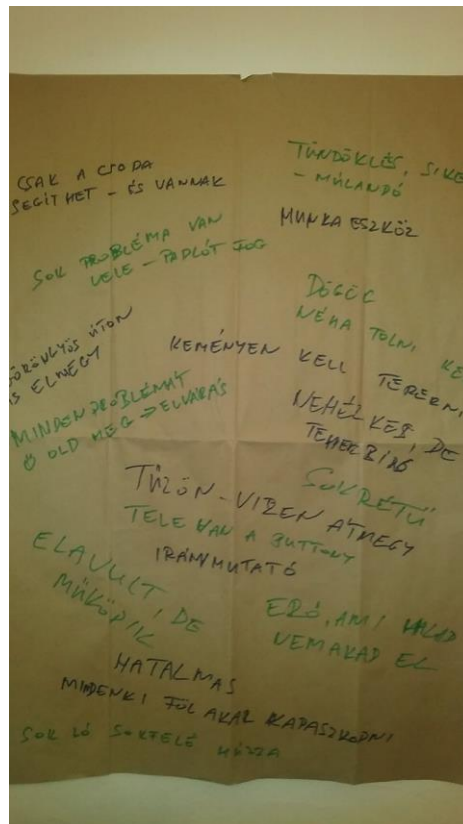 CSAK A CSODA
SEGÍTHET - ÉS VANNAK
TÜNDÖKLÉS, SIKE
- MÚLANDÓ
MUNKA ESZKÖZ
SOK PROBLÉMA VAN
VELE - PADLÓT FOG
DÖGÖC
NÉHA TOLNI KE
GÖRÖNGYÖS ÚTON
IS ELMEGY
KEMÉNYEN KELL TEPERNI
MINDEN PROBLÉMÁT
Ő OLD MEG → ELVÁRÁS
NEHÉZKES, DE
TEHERBÍRÓ
SOKRÉTŰ
TŰZÖN-VIZEN ÁTMEGY
TELE VAN A BUTTONY
IRÁNYMUTATÓ
ELAVULT, DE
MŰKÖDIK
ERŐ, AMI HALAD
NEM AKAD EL
HATALMAS
MINDENKI FÖL AKAR KAPASZKODNI
SOK LÓ SOKFELÉ HÚZZA